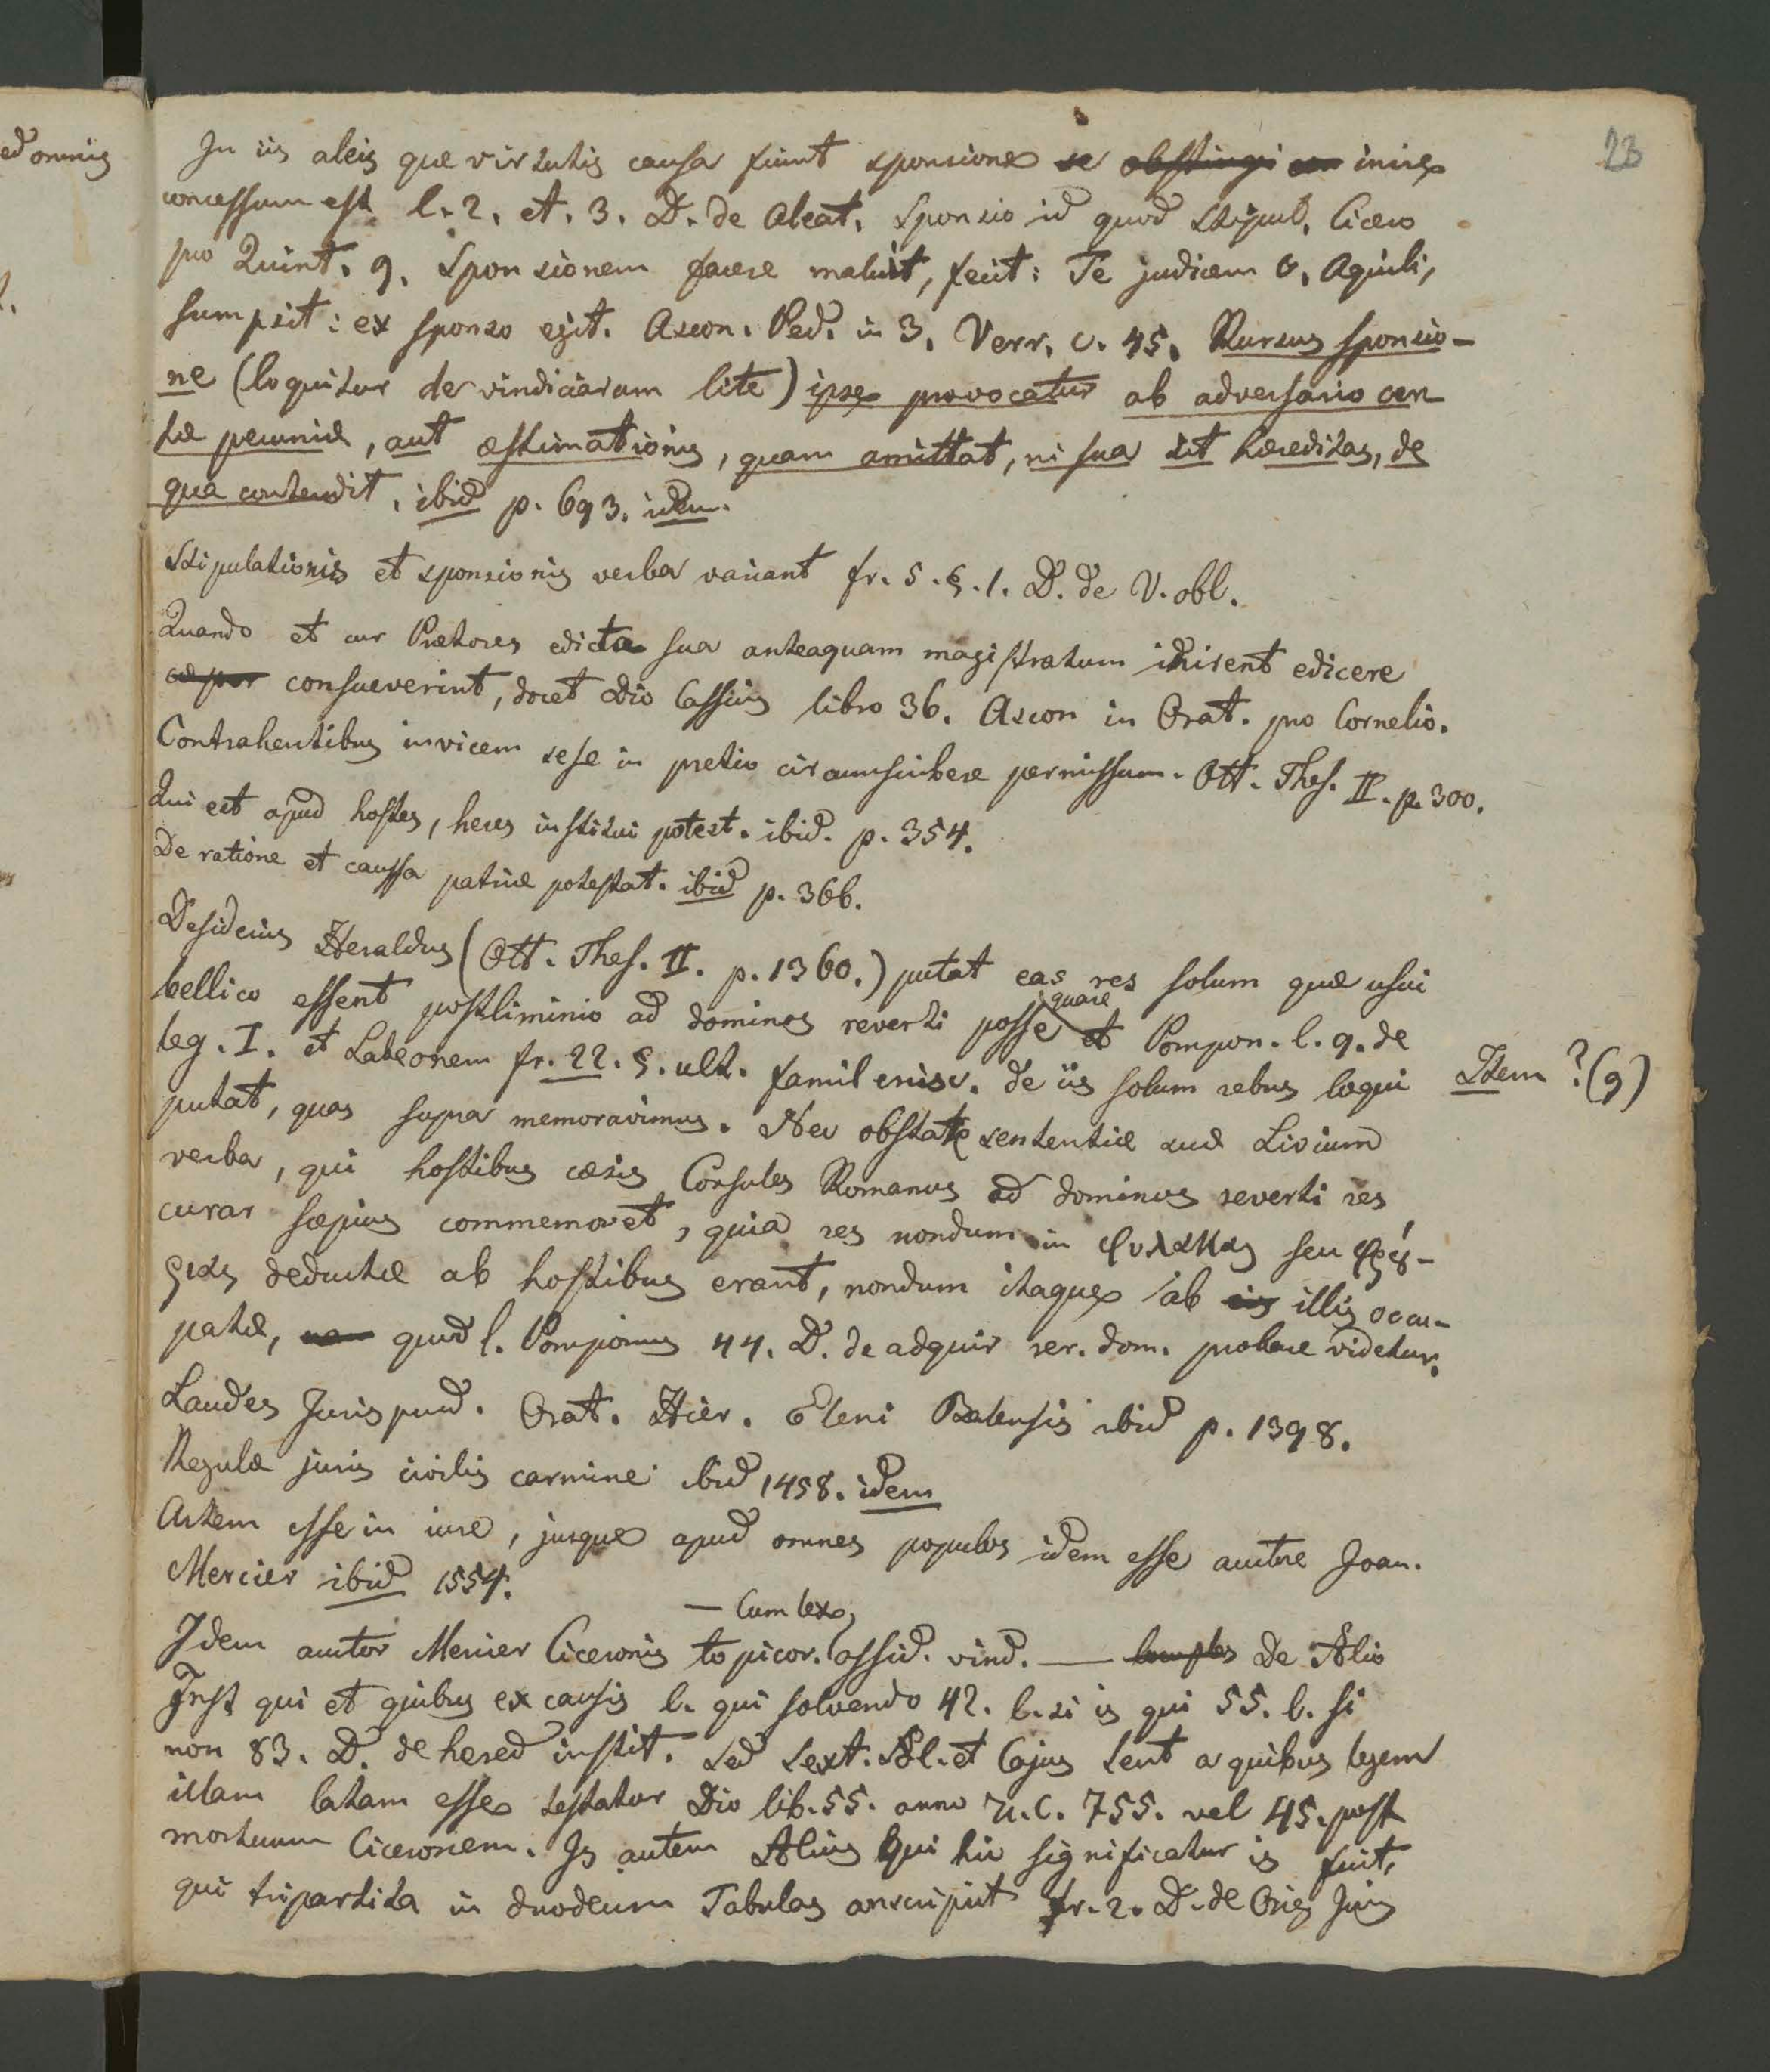 23
In iis aleis quæ virtutis causa fiunt sponsione se obstringi inire
concessum est l. 2. et. 3. D. de Aleat. Sponsio id quod stipul. Cicero
pro Quint. 9. Sponsionem facere maluit, fecit: Te judicem C. Aquili,
sumpsit: ex sponso egit. Ascon. Ped. in 3. Verr. c. 45. Rursus sponsio-
ne (loquitur de vindiciarum lite) ipse provocatur ab adversario cer
tæ pecuniæ, aut æstimationis, quam amittat, ni sua sit hæreditas, de
qua contendit. ibid p. 693. idem.
Stipulationis et sponsionis verba variant fr. 5. §. 1. D. de V. obl.
Quando et cur Prætores edicta sua anteaquam magistratum inirent edicere
consueverint, docet Dio Cassius libro 36. Ascon in Orat. pro Cornelio.
Contrahentibus invicem sese in pretio circumscribere permissum. Ott. Thes. II. p. 300.
Qui est apud hostes, heres institui potest. ibid. p. 354.
De ratione et caussa patriæ potestat. ibid p. 366.
Desiderius Heraldus (Ott. Thes. II. p. 1360.) putat eas res solum quæ usui
bellico essent postliminio ad dominos reverti posse quare et Pompon. l. 9. de
leg. I. et Labeonem fr. 22. §. ult. famil ercisc. de iis solum rebus loqui
Item ? (9)
putat, quas supra memoravimus. Nec obstare sententiæ suæ Livium
verba, qui hostibus cæsis Consules Romanos ad dominos reverti res
curar sæpius commemoret, quia res nondum in φυλακας seu φρȣ́-
ριας deductæ ab hostibus erant, nondum itaque ab iis illis occu-
patæ, quod l. Pomponius 44. D. de adquir rer. dom. probare videtur.
Laudes Jurisprud. Orat. Hier. Eleni Balensis ibid p. 1398.
Regulæ juris civilis carmine ibid 1458. idem
Artem esse in iure, jusque apud omnes populos idem esse auctore Joan.
Mercier ibid 1554.
— Cum lex
Idem auctor Mercier Ciceronis topicor. assid. vind. — De Ælio
Inst qui et quibus ex causis l. qui solvendo 42. l. si is qui 55. l. si
non 83. D. de hered instit. sed Sext. Æl. et Cajus Sent a quibus legem
illam latam esse testatur Dio lib. 55. anno U. C. 755. vel 45. post
mortuum Ciceronem. Is autem Ælius qui hic significatur is fuit,
qui tripartita in duodecim Tabulas conscripsit fr. 2. D. de Orig Juris
ed omnis